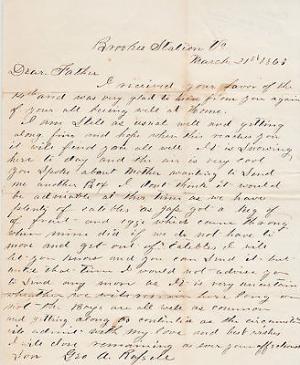 Brookes Station Va
March 21st 1863
Dear Father
I recieved your favor of the
14th and was very glad to hear from you again
of your all being well at home.
I am Still as usual well and getting
along fine and hope when this reaches you
it will find you all well It is Snowing
here to day and the air is very cool
You Spoke about Mother wanting to Send
me another Box I dont think it would
be adviseable at this time as we have
plenty of eatables as we got a keg
of fruit and which came through
when mine did if we do not have to
move and get out of Eatables I will
let you know and you can Send it but
untill that time I would not advise you
to Send any more as It is very uncertain
whether we will remain here long or
not The Boys are all well as common
and getting along as contented as the circumstances
will admit with my love and best wishes
I will close remaining as ever your affectionate
Son Geo A